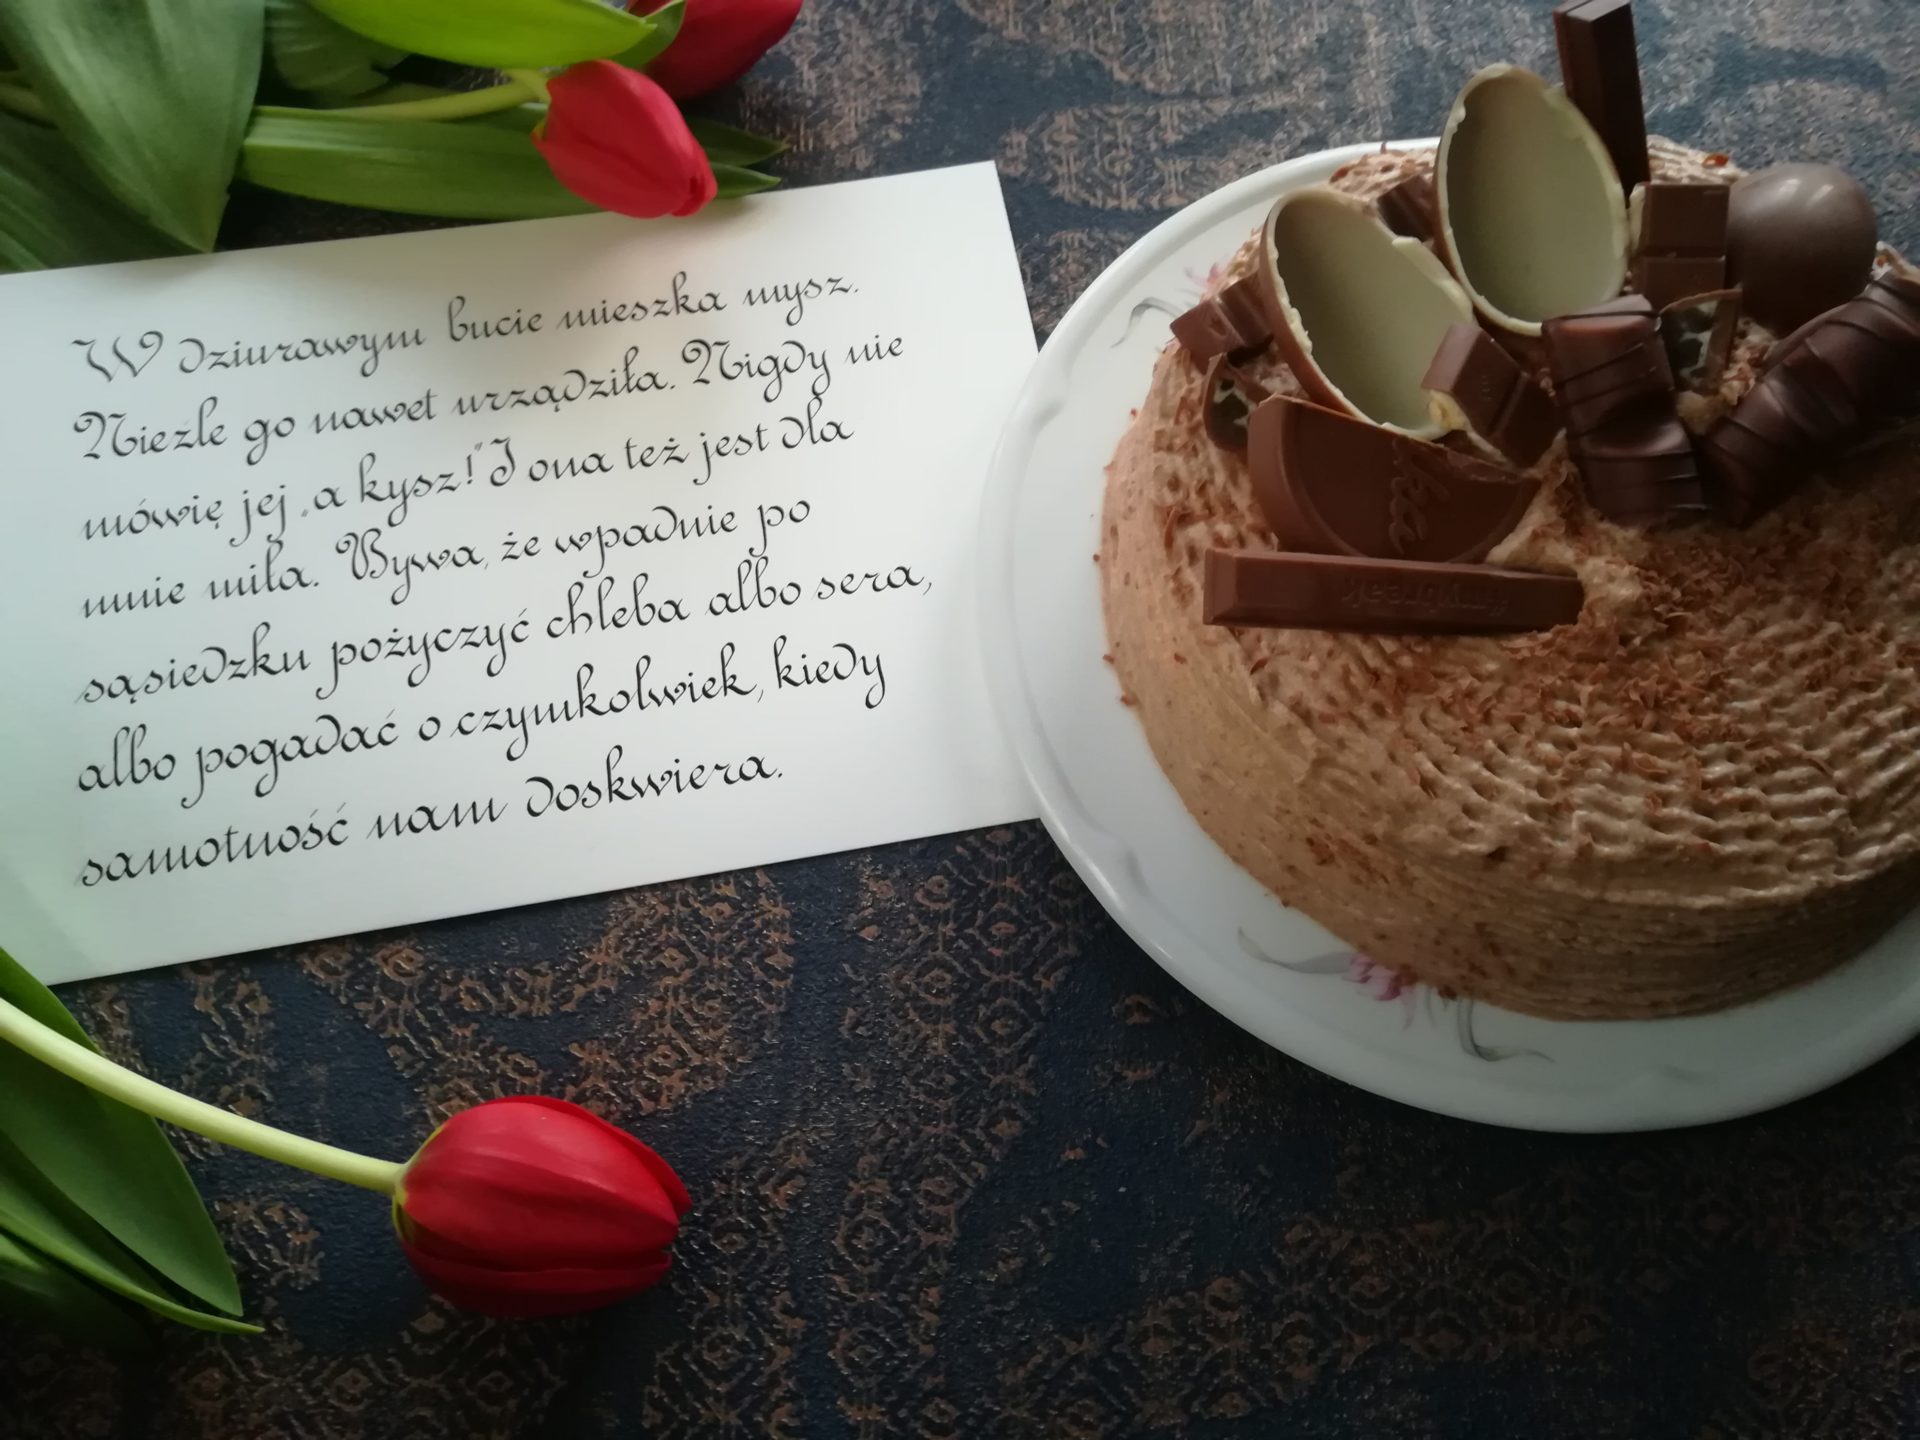 W dziurawym bucie mieszka mysz.
Nieźle go nawet urządziła. Nigdy nie
mówię jej „a kysz!" I ona też jest dla
mnie miła. Bywa, że wpadnie po
sąsiedzku pożyczyć chleba albo sera,
albo pogadać o czymkolwiek, kiedy
samotność nam doskwiera.